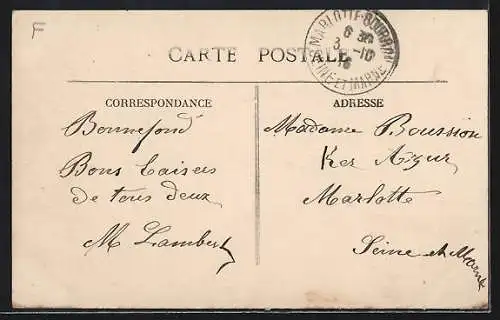 F
MARLOTTE-BOURRON
6 30
3 -10
16
SEINE ET MARNE
CARTE POSTALE
CORRESPONDANCE
Bonnefond
Bons baisers
de tous deux
M Lambert
ADRESSE
Madame Boussion
Ker Azur
Marlotte
Seine et Marne